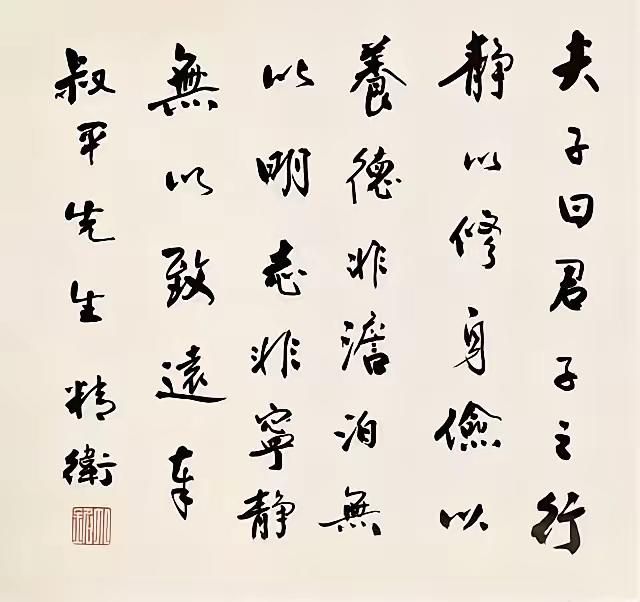 夫子曰君子之行
静以修身儉以
養德非澹泊無
以明志非寧静
無以致遠奉
叔平先生 精衛